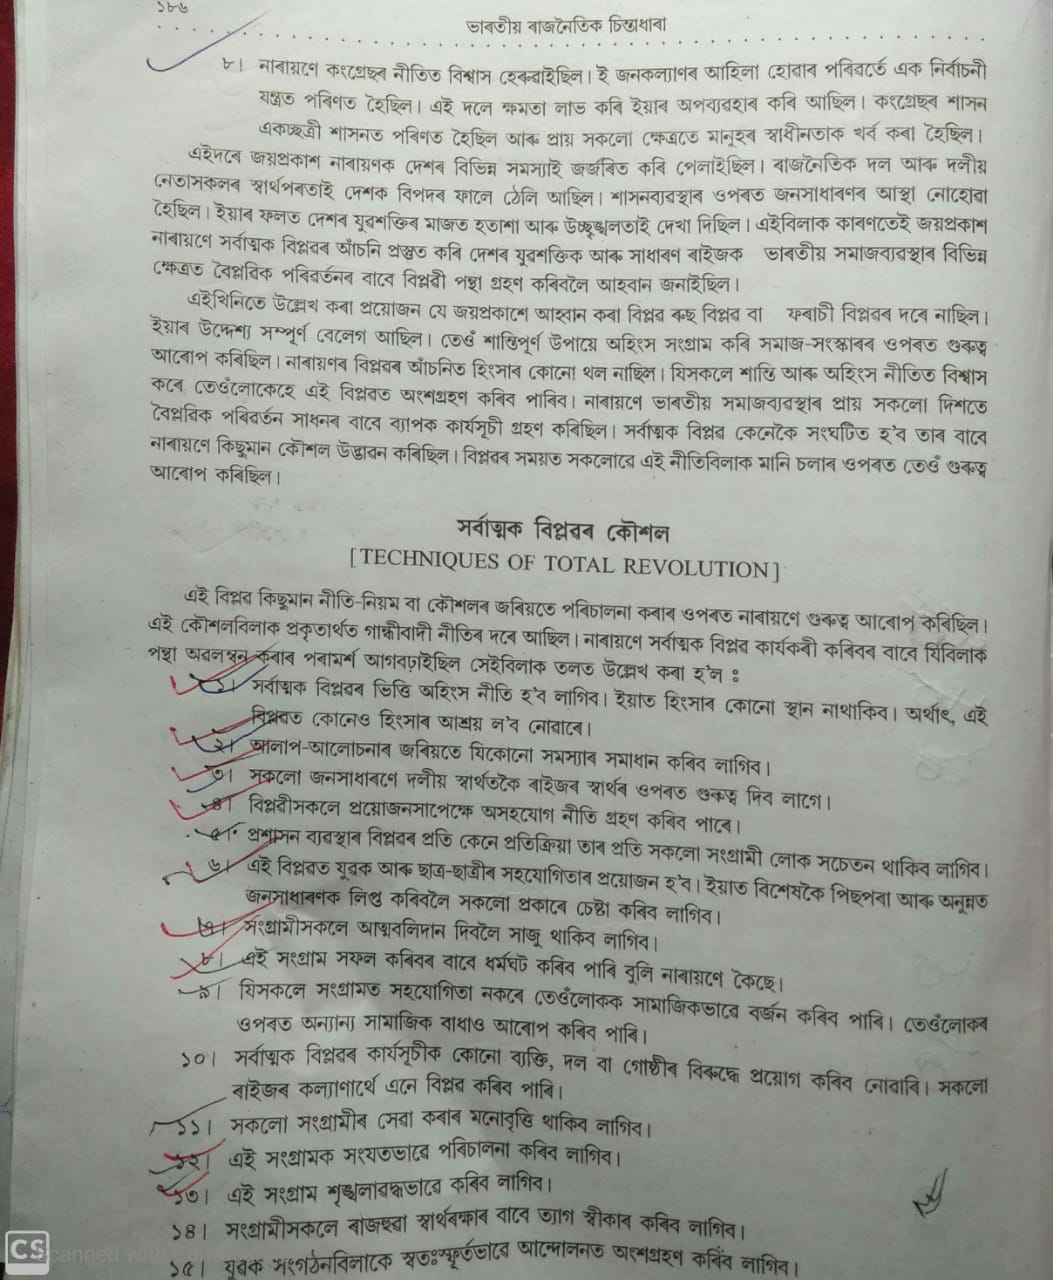 ১৮৬
ভাৰতীয় ৰাজনৈতিক চিন্তাধাৰা
৮। নাৰায়ণে কংগ্ৰেছৰ নীতিত বিশ্বাস হেৰুৱাইছিল। ই জনকল্যাণৰ আহিলা হোৱাৰ পৰিৱৰ্তে এক নিৰ্বাচনী
যন্ত্ৰত পৰিণত হৈছিল। এই দলে ক্ষমতা লাভ কৰি ইয়াৰ অপব্যৱহাৰ কৰি আছিল। কংগ্ৰেছৰ শাসন
একচ্ছত্ৰী শাসনত পৰিণত হৈছিল আৰু প্ৰায় সকলো ক্ষেত্ৰতে মানুহৰ স্বাধীনতাক খৰ্ব কৰা হৈছিল।
এইদৰে জয়প্ৰকাশ নাৰায়ণক দেশৰ বিভিন্ন সমস্যাই জৰ্জৰিত কৰি পেলাইছিল। ৰাজনৈতিক দল আৰু দলীয়
নেতাসকলৰ স্বাৰ্থপৰতাই দেশক বিপদৰ ফালে ঠেলি আছিল। শাসনব্যৱস্থাৰ ওপৰত জনসাধাৰণৰ আস্থা নোহোৱা
হৈছিল। ইয়াৰ ফলত দেশৰ যুৱশক্তিৰ মাজত হতাশা আৰু উচ্ছৃঙ্খলতাই দেখা দিছিল। এইবিলাক কাৰণতেই জয়প্ৰকাশ
নাৰায়ণে সৰ্বাত্মক বিপ্লৱৰ আঁচনি প্ৰস্তুত কৰি দেশৰ যুৱশক্তিক আৰু সাধাৰণ ৰাইজক ভাৰতীয় সমাজব্যৱস্থাৰ বিভিন্ন
ক্ষেত্ৰত বৈপ্লৱিক পৰিৱৰ্তনৰ বাবে বিপ্লৱী পন্থা গ্ৰহণ কৰিবলৈ আহবান জনাইছিল।
এইখিনিতে উল্লেখ কৰা প্ৰয়োজন যে জয়প্ৰকাশে আহ্বান কৰা বিপ্লৱ ৰুছ বিপ্লৱ বা ফৰাচী বিপ্লৱৰ দৰে নাছিল।
ইয়াৰ উদ্দেশ্য সম্পূৰ্ণ বেলেগ আছিল। তেওঁ শান্তিপূৰ্ণ উপায়ে অহিংস সংগ্ৰাম কৰি সমাজ-সংস্কাৰৰ ওপৰত গুৰুত্ব
আৰোপ কৰিছিল। নাৰায়ণৰ বিপ্লৱৰ আঁচনিত হিংসাৰ কোনো থল নাছিল। যিসকলে শান্তি আৰু অহিংস নীতিত বিশ্বাস
কৰে তেওঁলোকেহে এই বিপ্লৱত অংশগ্ৰহণ কৰিব পাৰিব। নাৰায়ণে ভাৰতীয় সমাজব্যৱস্থাৰ প্ৰায় সকলো দিশতে
বৈপ্লৱিক পৰিৱৰ্তন সাধনৰ বাবে ব্যাপক কাৰ্যসূচী গ্ৰহণ কৰিছিল। সৰ্বাত্মক বিপ্লৱ কেনেকৈ সংঘটিত হ'ব তাৰ বাবে
নাৰায়ণে কিছুমান কৌশল উদ্ভাৱন কৰিছিল। বিপ্লৱৰ সময়ত সকলোৱে এই নীতিবিলাক মানি চলাৰ ওপৰত তেওঁ গুৰুত্ব
আৰোপ কৰিছিল।
সৰ্বাত্মক বিপ্লৱৰ কৌশল
[TECHNIQUES OF TOTAL REVOLUTION]
এই বিপ্লৱ কিছুমান নীতি-নিয়ম বা কৌশলৰ জৰিয়তে পৰিচালনা কৰাৰ ওপৰত নাৰায়ণে গুৰুত্ব আৰোপ কৰিছিল।
এই কৌশলবিলাক প্ৰকৃতাৰ্থত গান্ধীবাদী নীতিৰ দৰে আছিল। নাৰায়ণে সৰ্বাত্মক বিপ্লৱ কাৰ্যকৰী কৰিবৰ বাবে যিবিলাক
পন্থা অৱলম্বন কৰাৰ পৰামৰ্শ আগবঢ়াইছিল সেইবিলাক তলত উল্লেখ কৰা হ'ল :
১। সৰ্বাত্মক বিপ্লৱৰ ভিত্তি অহিংস নীতি হ'ব লাগিব। ইয়াত হিংসাৰ কোনো স্থান নাথাকিব। অৰ্থাৎ, এই
বিপ্লৱত কোনেও হিংসাৰ আশ্ৰয় ল'ব নোৱাৰে।
২। আলাপ-আলোচনাৰ জৰিয়তে যিকোনো সমস্যাৰ সমাধান কৰিব লাগিব।
৩। সকলো জনসাধাৰণে দলীয় স্বাৰ্থতকৈ ৰাইজৰ স্বাৰ্থৰ ওপৰত গুৰুত্ব দিব লাগে।
৪। বিপ্লৱীসকলে প্ৰয়োজনসাপেক্ষে অসহযোগ নীতি গ্ৰহণ কৰিব পাৰে।
৫। প্ৰশাসন ব্যৱস্থাৰ বিপ্লৱৰ প্ৰতি কেনে প্ৰতিক্ৰিয়া তাৰ প্ৰতি সকলো সংগ্ৰামী লোক সচেতন থাকিব লাগিব।
৬। এই বিপ্লৱত যুৱক আৰু ছাত্ৰ-ছাত্ৰীৰ সহযোগিতাৰ প্ৰয়োজন হ'ব। ইয়াত বিশেষকৈ পিছপৰা আৰু অনুন্নত
জনসাধাৰণক লিপ্ত কৰিবলৈ সকলো প্ৰকাৰে চেষ্টা কৰিব লাগিব।
৭। সংগ্ৰামীসকলে আত্মবলিদান দিবলৈ সাজু থাকিব লাগিব।
৮। এই সংগ্ৰাম সফল কৰিবৰ বাবে ধৰ্মঘট কৰিব পাৰি বুলি নাৰায়ণে কৈছে।
৯। যিসকলে সংগ্ৰামত সহযোগিতা নকৰে তেওঁলোকক সামাজিকভাৱে বৰ্জন কৰিব পাৰি। তেওঁলোকৰ
ওপৰত অন্যান্য সামাজিক বাধাও আৰোপ কৰিব পাৰি।
১০। সৰ্বাত্মক বিপ্লৱৰ কাৰ্যসূচীক কোনো ব্যক্তি, দল বা গোষ্ঠীৰ বিৰুদ্ধে প্ৰয়োগ কৰিব নোৱাৰি। সকলো
ৰাইজৰ কল্যাণাৰ্থে এনে বিপ্লৱ কৰিব পাৰি।
১১। সকলো সংগ্ৰামীৰ সেৱা কৰাৰ মনোবৃত্তি থাকিব লাগিব।
১২। এই সংগ্ৰামক সংযতভাৱে পৰিচালনা কৰিব লাগিব।
১৩। এই সংগ্ৰাম শৃঙ্খলাবদ্ধভাৱে কৰিব লাগিব।
১৪। সংগ্ৰামীসকলে ৰাজহুৱা স্বাৰ্থৰক্ষাৰ বাবে ত্যাগ স্বীকাৰ কৰিব লাগিব।
১৫। যুৱক সংগঠনবিলাকে স্বতঃস্ফূৰ্তভাৱে আন্দোলনত অংশগ্ৰহণ কৰিব লাগিব।
CS canned with